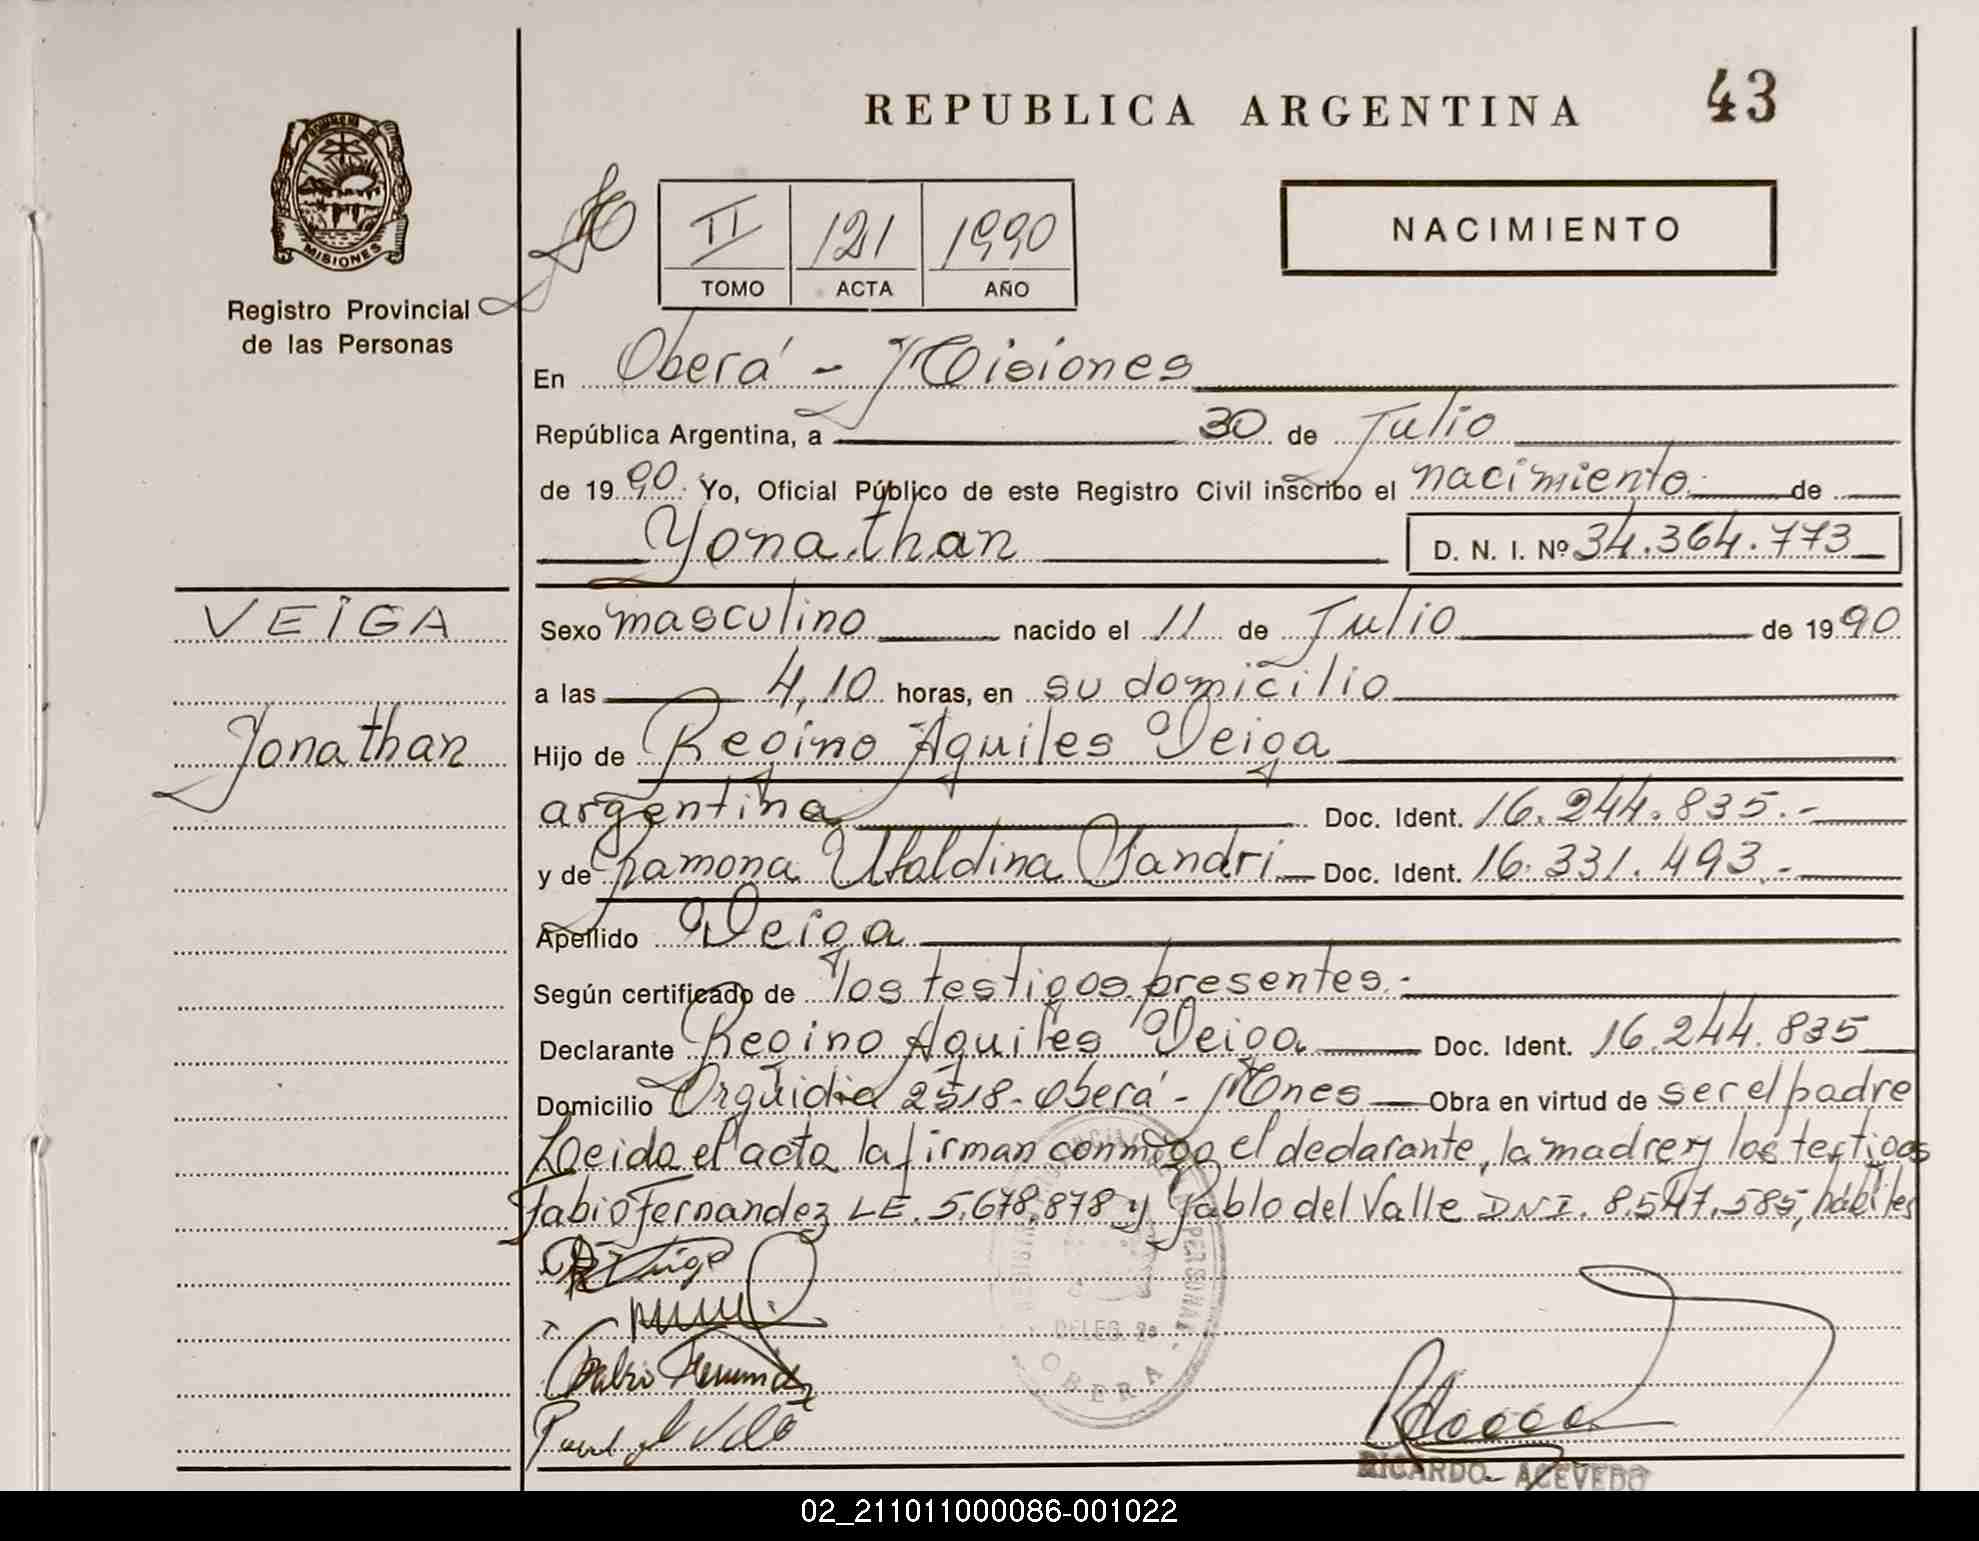 REPUBLICA ARGENTINA 43
PROVINCIA DE MISIONES
Registro Provincial
de las Personas
II 121 1990
TOMO ACTA AÑO
NACIMIENTO
En Oberá - Misiones
República Argentina, a 30 de Julio
de 1990. Yo, Oficial Público de este Registro Civil inscribo el nacimiento de
Yonathan D. N. I. Nº 34.364.773
VEIGA
Yonathan
Sexo masculino nacido el 11 de Julio de 1990
a las 4,10 horas, en su domicilio
Hijo de Regino Aquiles Veiga
argentina Doc. Ident. 16.244.835.-
y de Ramona Ubaldina Sandri Doc. Ident. 16.331.493.-
Apellido Veiga
Según certificado de los testigos presentes.-
Declarante Regino Aquiles Veiga Doc. Ident. 16.244.835
Domicilio Orquidia 2518 - Oberá - Mnes Obra en virtud de ser el padre
Leida el acta la firman conmigo el declarante, la madre y los testigos
Fabio Fernandez LE. 5.678.878 y Pablo del Valle DNI. 8.547.585, habiles
DELEG. 2a
OBERA
RICARDO ACEVEDO
02_211011000086-001022